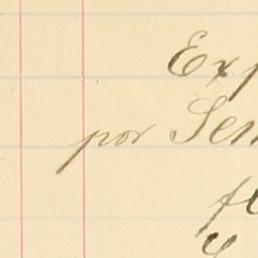 Exp
por Sen
fe